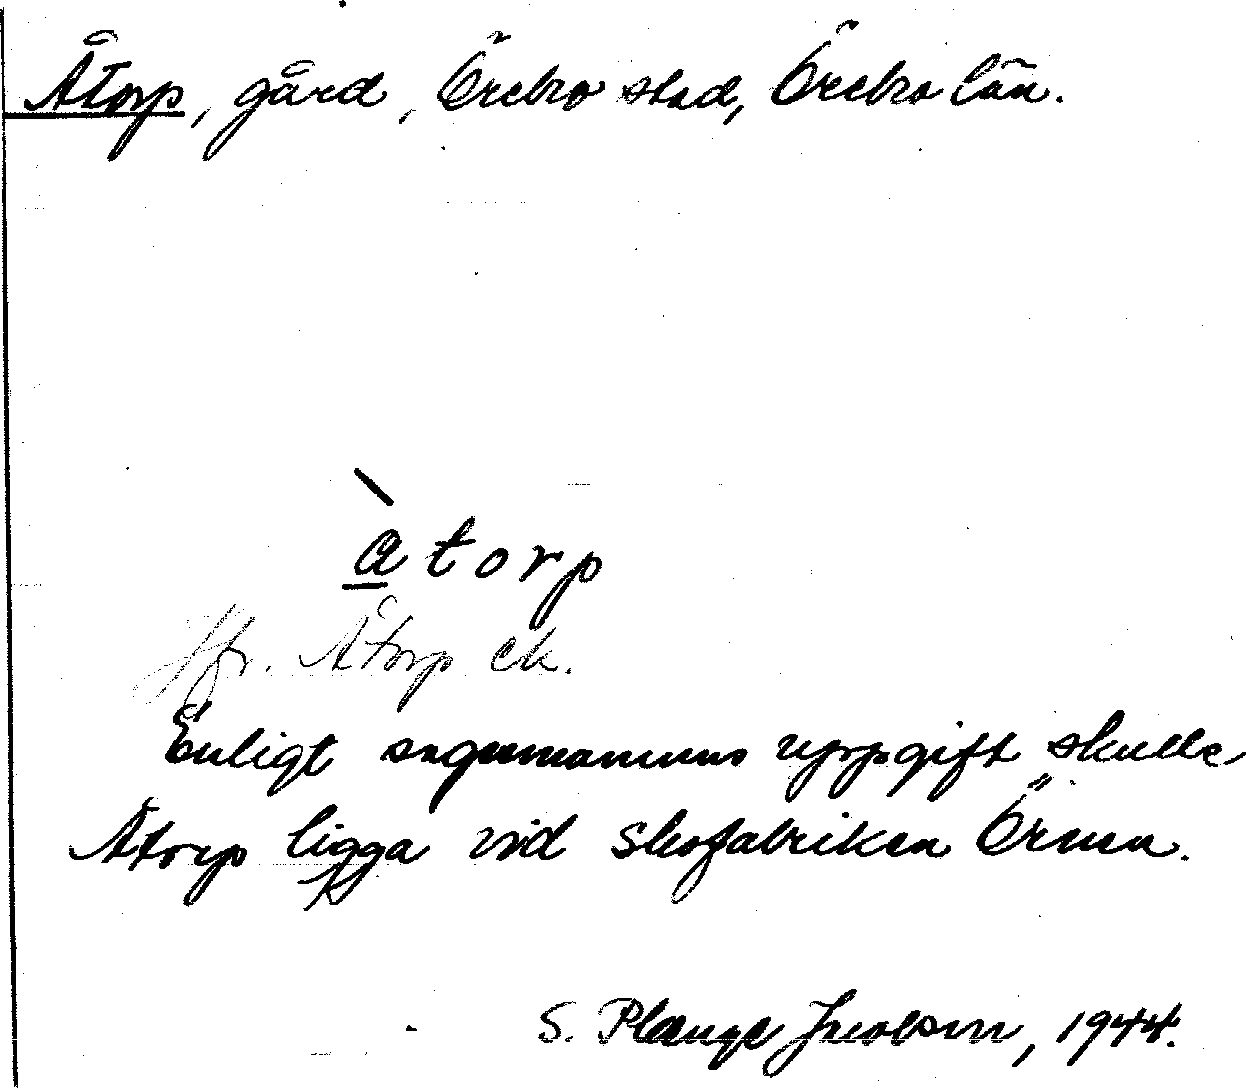 Åtorp, gård, Örebro stad, Örebro län.
àtorp
Jfr. Åtorp ek.
Enligt sagesmannens uppgift skulle
Åtorp ligga vid skofabriken Örnen.
S. Plange Jacobson, 1944.